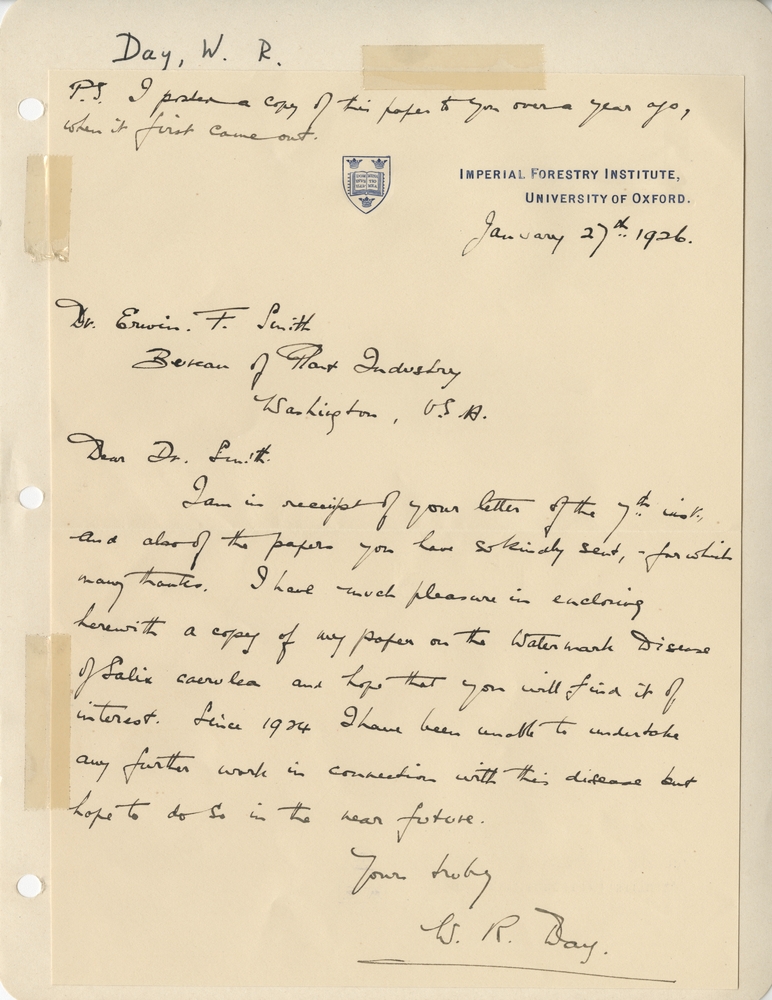 Day, W. R.
P.S. I posted a copy of this paper to you over a year ago,
when it first came out.
IMPERIAL FORESTRY INSTITUTE,
UNIVERSITY OF OXFORD.
January 27th. 1926.
Dr. Erwin. F. Smith
Bureau of Plant Industry
Washington, U.S.A.
Dear Dr. Smith.
I am in receipt of your letter of the 7th inst.,
and also of the papers you have so kindly sent, - for which
many thanks. I have much pleasure in enclosing
herewith a copy of my paper on the Watermark Disease
of Salix caerulea and hope that you will find it of
interest. Since 1924 I have been unable to undertake
any further work in connection with this disease but
hope to do so in the near future.
Yours truly
W. R. Day.